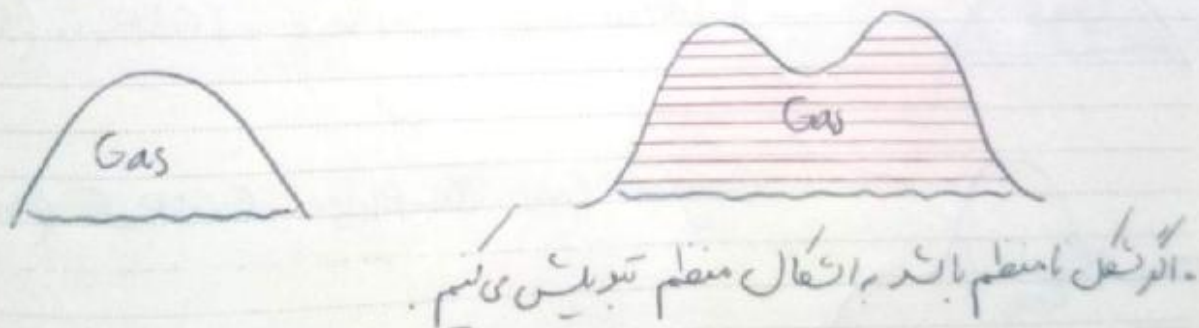 Gas
Gas
اگر شکل نامنظم باشد به اشکال منظم تبدیلش می کنیم .